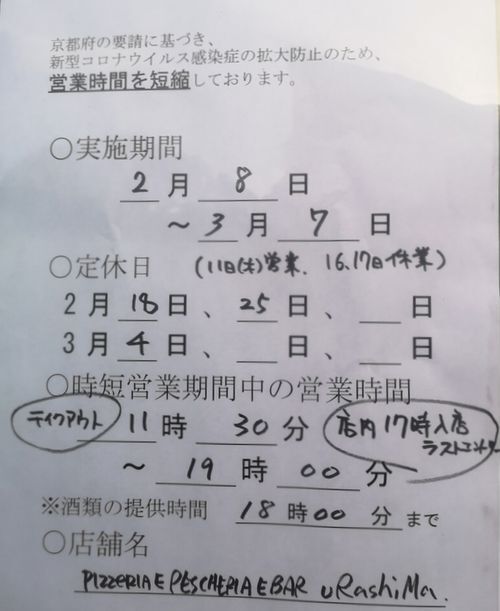 京都府の要請に基づき、
新型コロナウイルス感染症の拡大防止のため、
営業時間を短縮しております。
○実施期間
2月8日
～3月7日
○定休日 (11日(木)営業、16.17日休業)
2月18日、25日、__日
3月4日、__日、__日
○時短営業期間中の営業時間
テイクアウト 11時30分 店内17時入店
ラストエントリー
～19時00分
※酒類の提供時間 18時00分まで
○店舗名
PIZZERIA E PESCHERIA E BAR uRashiMa.